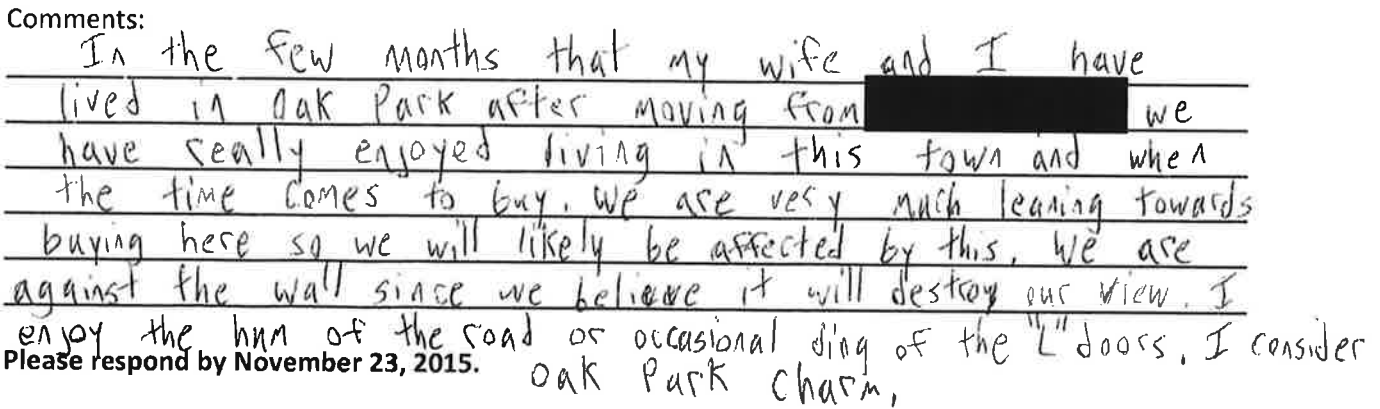 Comments:
In the few months that my wife and I have
lived in Oak Park after moving from we
have really enjoyed living in this town and when
the time comes to buy. We are very much leaning towards
buying here so we will likely be affected by this. We are
against the wall since we believe it will destroy our view. I
enjoy the hum of the road or occasional ding of the "L" doors. I consider
Please respond by November 23, 2015.
Oak Park charm.